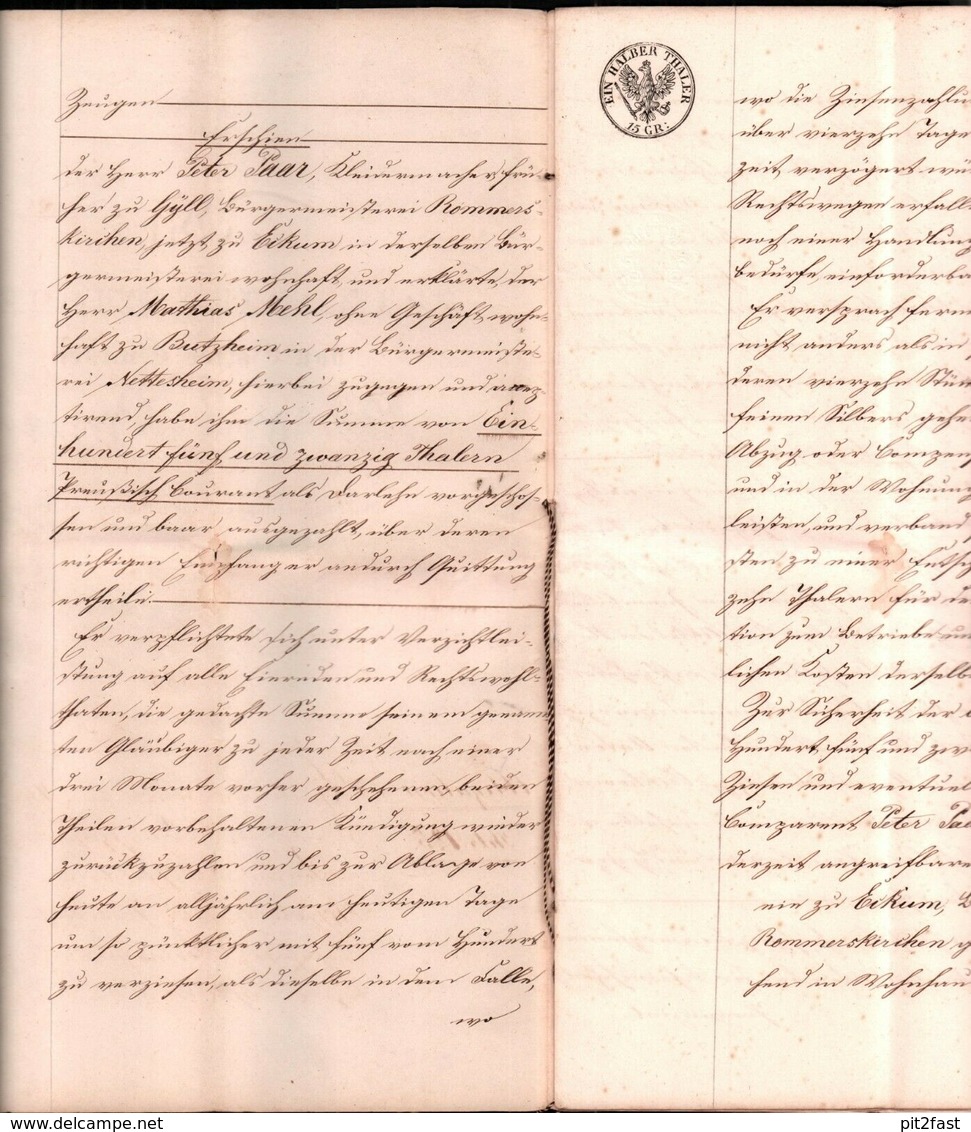 Zeugen
Erschien
der Herr Peter Paar, Kleidermacher, frü-
her zu Gyll, Bürgermeisterei Rommers-
kirchen, jetzt zu Eckum in derselben Bür-
germeisterei wohnhaft, und erklärte, der
Herr Mathias Mehl, ohne Geschäft, wohn-
haft zu Butzheim in der Bürgermeiste-
rei Nettesheim, hierbei zugegen und accep-
tirend, habe ihm die Summe von Ein-
hundert fünf und zwanzig Thalern
Preußisch Courant als Darlehn vorgeschos-
sen und baar ausgezahlt, über deren
richtigen Empfang er andurch Quittung
ertheile.
Er verpflichtete sich unter Verzichtlei-
stung auf alle Einreden und Rechtswohl-
thaten, die gedachte Summe seinem genann-
ten Gläubiger zu jeder Zeit nach einer
drei Monate vorher geschehenen, beiden
Theilen vorbehaltenen Kündigung wieder
zurückzuzahlen und bis zur Ablage von
heute an alljährlich am heutigen Tage
um so pünktlicher mit fünf vom Hundert
zu verzinsen, als dieselbe in dem Falle,
wo
EIN HALBER THALER
15 GR:
wo die Zinsenzahlu
über vierzehn Tage
zeit verzögert wü
Rechtswegen erfall
noch einer Handlung
bedürfe, einforderba
Er versprach fern
nicht anders als in
deren vierzehn Stü
feinen Silbers geh
Abzug oder Compen
und in der Wohnung
leisten, und verband
sten zu einer Entsch
zehn Thalern für de
tion zum Betriebe un
lichen Kosten derselb
Zur Sicherheit der
Hundert fünf und zw
Zinsen und eventuel
Comparent Peter Paa
derzeit angreifbare
ein zu Eckum, B
Rommerskirchen g
hend in Wohnhau
pit2fast